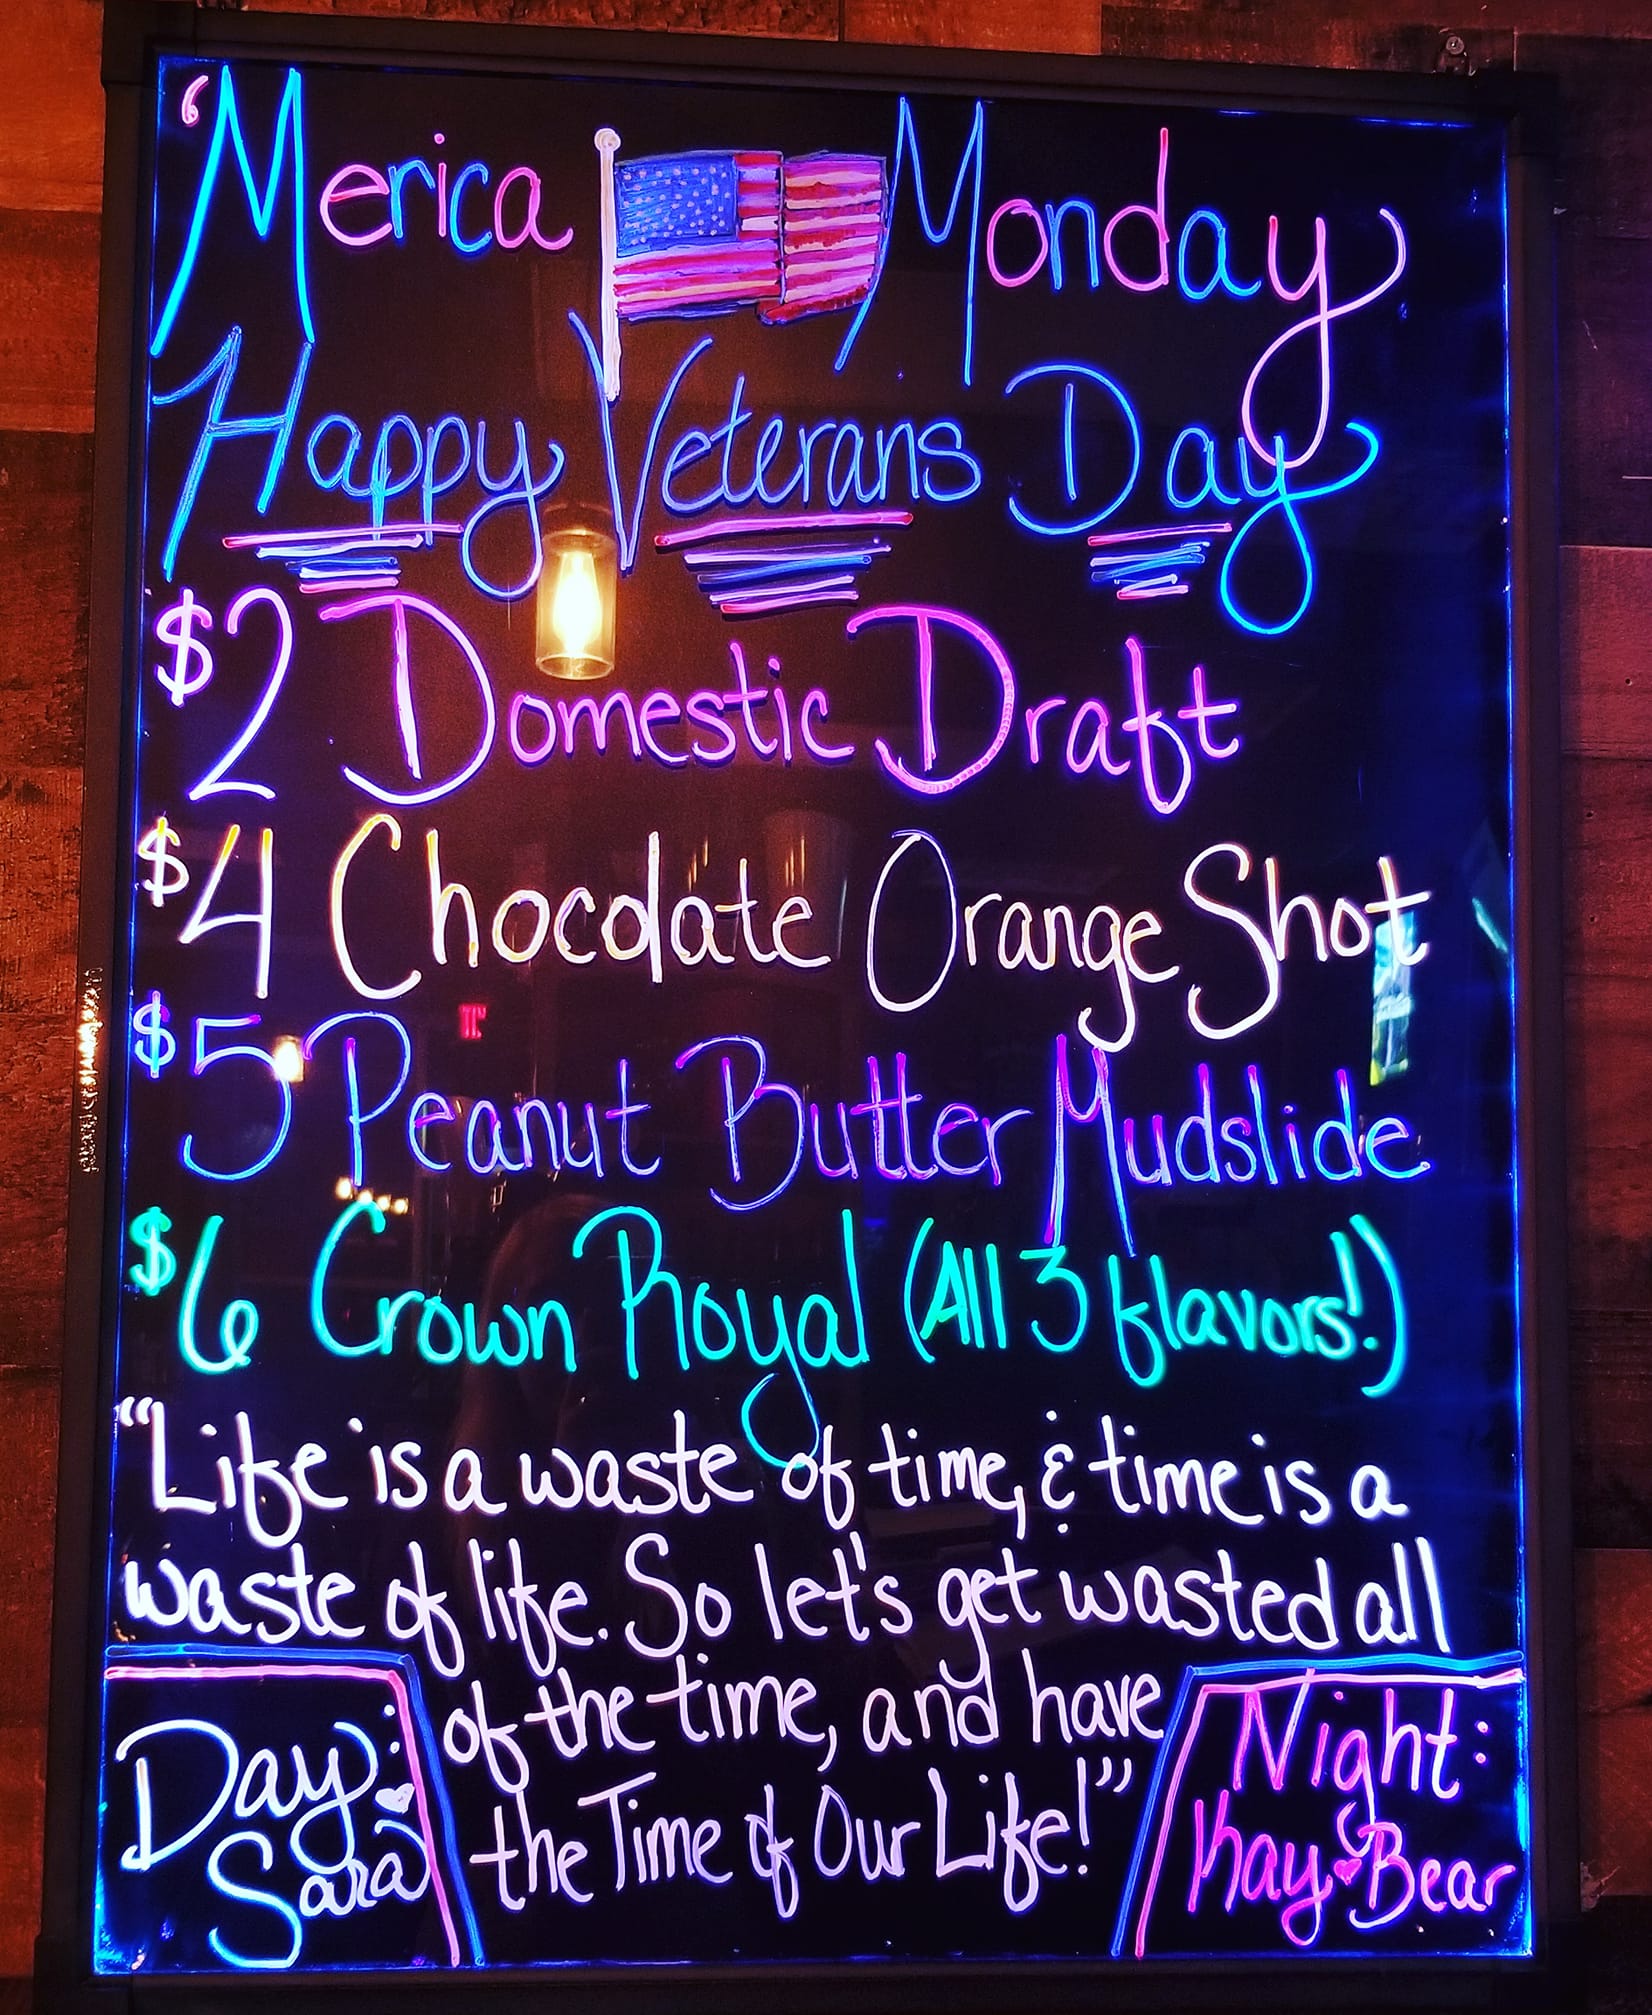 'Merica Monday
Happy Veterans Day
$2 Domestic Draft
$4 Chocolate Orange Shot
$5 Peanut Butter Mudslide
$6 Crown Royal (All 3 flavors!)
"Life is a waste of time, & time is a
waste of life. So let's get wasted all
of the time, and have
the Time of Our Life!"
Day:
Sara
Night:
Khay Bear